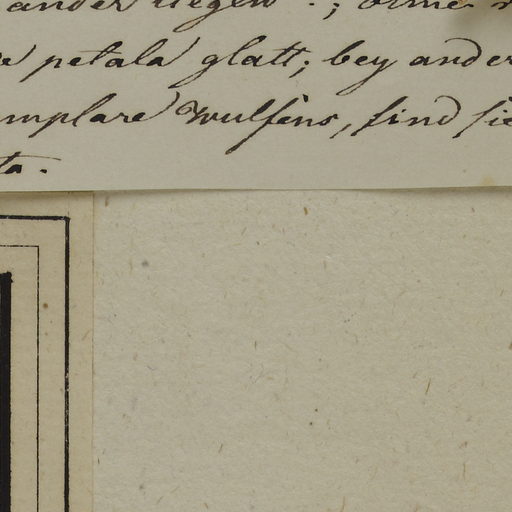 ander liegen . ; ohne
petala glatt; bey ander
mplare Wulfens, sind sie
ta.